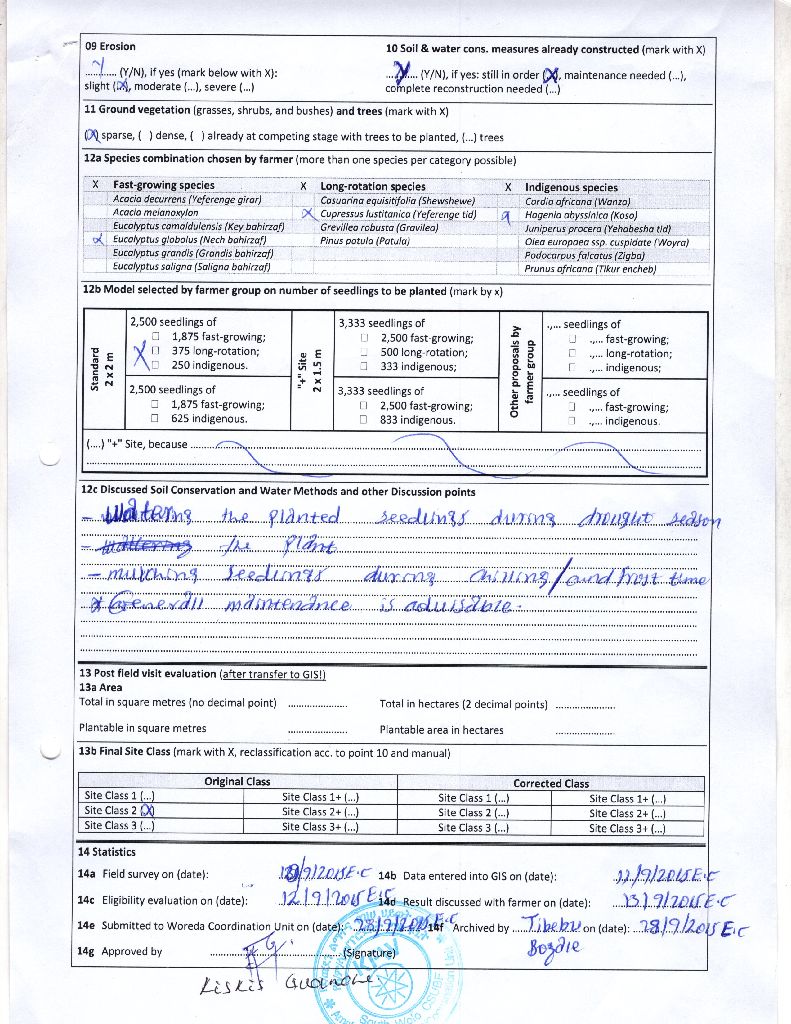 09 Erosion
10 Soil & water cons. measures already constructed (mark with X)
Y (Y/N), if yes (mark below with X):
slight (X), moderate (...), severe (...)
Y (Y/N), if yes: still in order (X), maintenance needed (...),
complete reconstruction needed (...)
11 Ground vegetation (grasses, shrubs, and bushes) and trees (mark with X)
(X) sparse, ( ) dense, ( ) already at competing stage with trees to be planted, (...) trees
12a Species combination chosen by farmer (more than one species per category possible)
X Fast-growing species X Long-rotation species X Indigenous species
Acacia decurrens (Yeferenge girar) Casuarina equisitifolia (Shewshewe) Cordia africana (Wanza)
Acacia melanoxylon X Cupressus lustitanica (Yeferenge tid) Hagenia abyssinica (Koso)
Eucalyptus camaldulensis (Key bahirzaf) Grevillea robusta (Gravilea) Juniperus procera (Yehabesha tid)
X Eucalyptus globolus (Nech bahirzaf) Pinus patula (Patula) Olea europaea ssp. cuspidate (Woyra)
Eucalyptus grandis (Grandis bahirzaf) Podocarpus falcatus (Zigba)
Eucalyptus saligna (Saligna bahirzaf) Prunus africana (Tikur encheb)
12b Model selected by farmer group on number of seedlings to be planted (mark by x)
Standard 2 x 2 m
2,500 seedlings of
1,875 fast-growing;
X 375 long-rotation;
250 indigenous.
2,500 seedlings of
1,875 fast-growing;
625 indigenous.
"+" Site 2 x 1.5 m
3,333 seedlings of
2,500 fast-growing;
500 long-rotation;
333 indigenous;
3,333 seedlings of
2,500 fast-growing;
833 indigenous.
Other proposals by farmer group
.,... seedlings of
.,... fast-growing;
.,... long-rotation;
.,... indigenous;
.,... seedlings of
.,... fast-growing;
.,... indigenous.
(....) "+" Site, because
12c Discussed Soil Conservation and Water Methods and other Discussion points
- Watering the planted seedlings during drought season
- the plant
- mulching seedlings during chilling/and frost time
* Generall maintenance is aduisable.
13 Post field visit evaluation (after transfer to GIS!)
13a Area
Total in square metres (no decimal point) ..................... Total in hectares (2 decimal points) .....................
Plantable in square metres ..................... Plantable area in hectares .....................
13b Final Site Class (mark with X, reclassification acc. to point 10 and manual)
Original Class Corrected Class
Site Class 1 (...) Site Class 1+ (...) Site Class 1 (...) Site Class 1+ (...)
Site Class 2 (X) Site Class 2+ (...) Site Class 2 (...) Site Class 2+ (...)
Site Class 3 (...) Site Class 3+ (...) Site Class 3 (...) Site Class 3+ (...)
14 Statistics
14a Field survey on (date): /9/2015 E.C 14b Data entered into GIS on (date): 12/9/2015 E.C
14c Eligibility evaluation on (date): 12/9/2015 E.C 14d Result discussed with farmer on (date): 13/9/2015 E.C
14e Submitted to Woreda Coordination Unit on (date): 28/9/2015 E.C 14f Archived by Tibebu Bogale on (date): 28/9/2015 E.C
14g Approved by (Signature)
KFW
South Wolo CSUBF